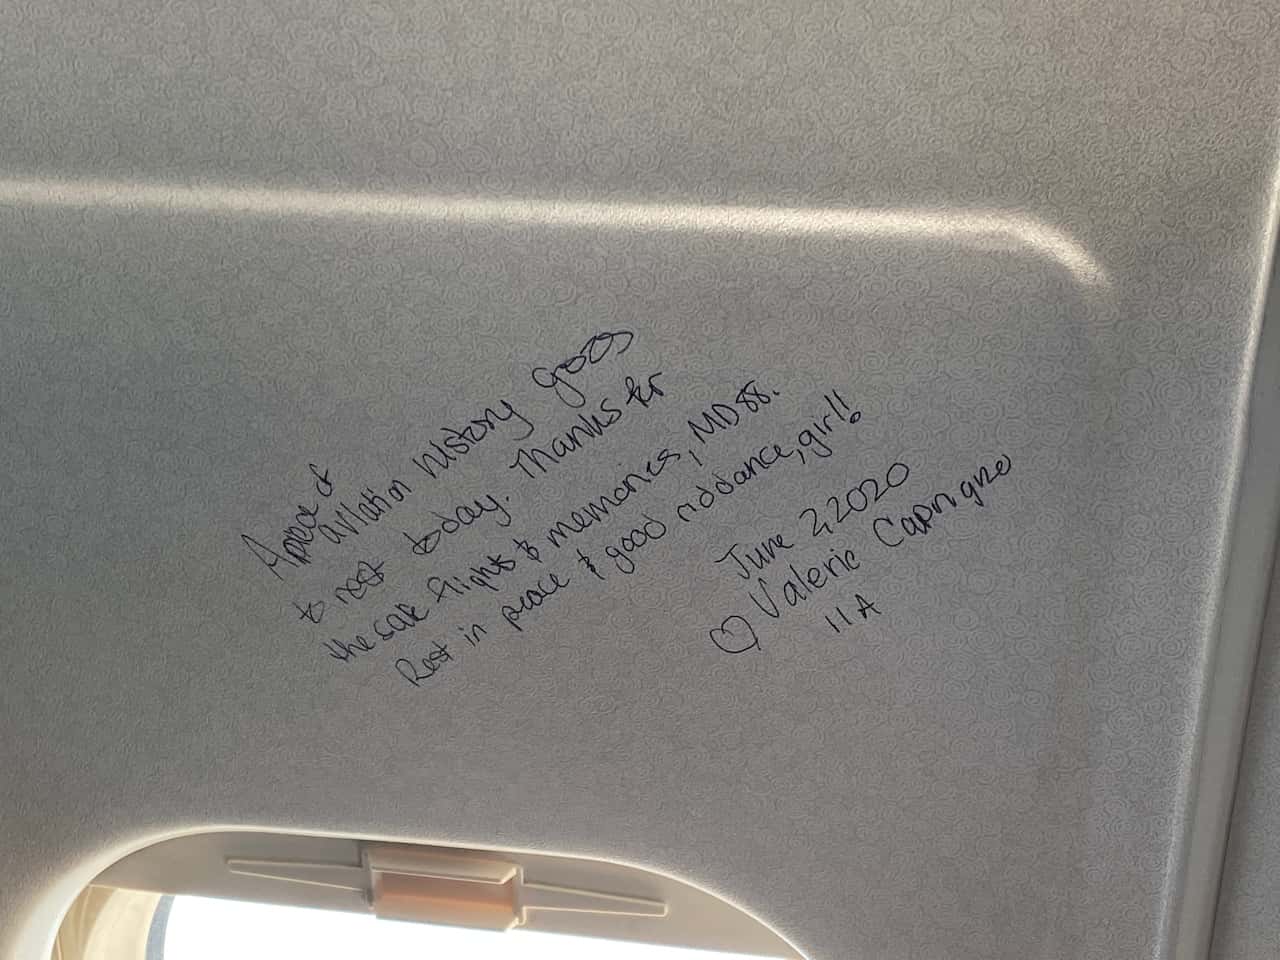 A piece of
aviation history goes
to rest today. Thanks for
the safe flights & memories, MD 88.
Rest in peace & good riddance, girl!
June 2, 2020
♡ Valerie
11A